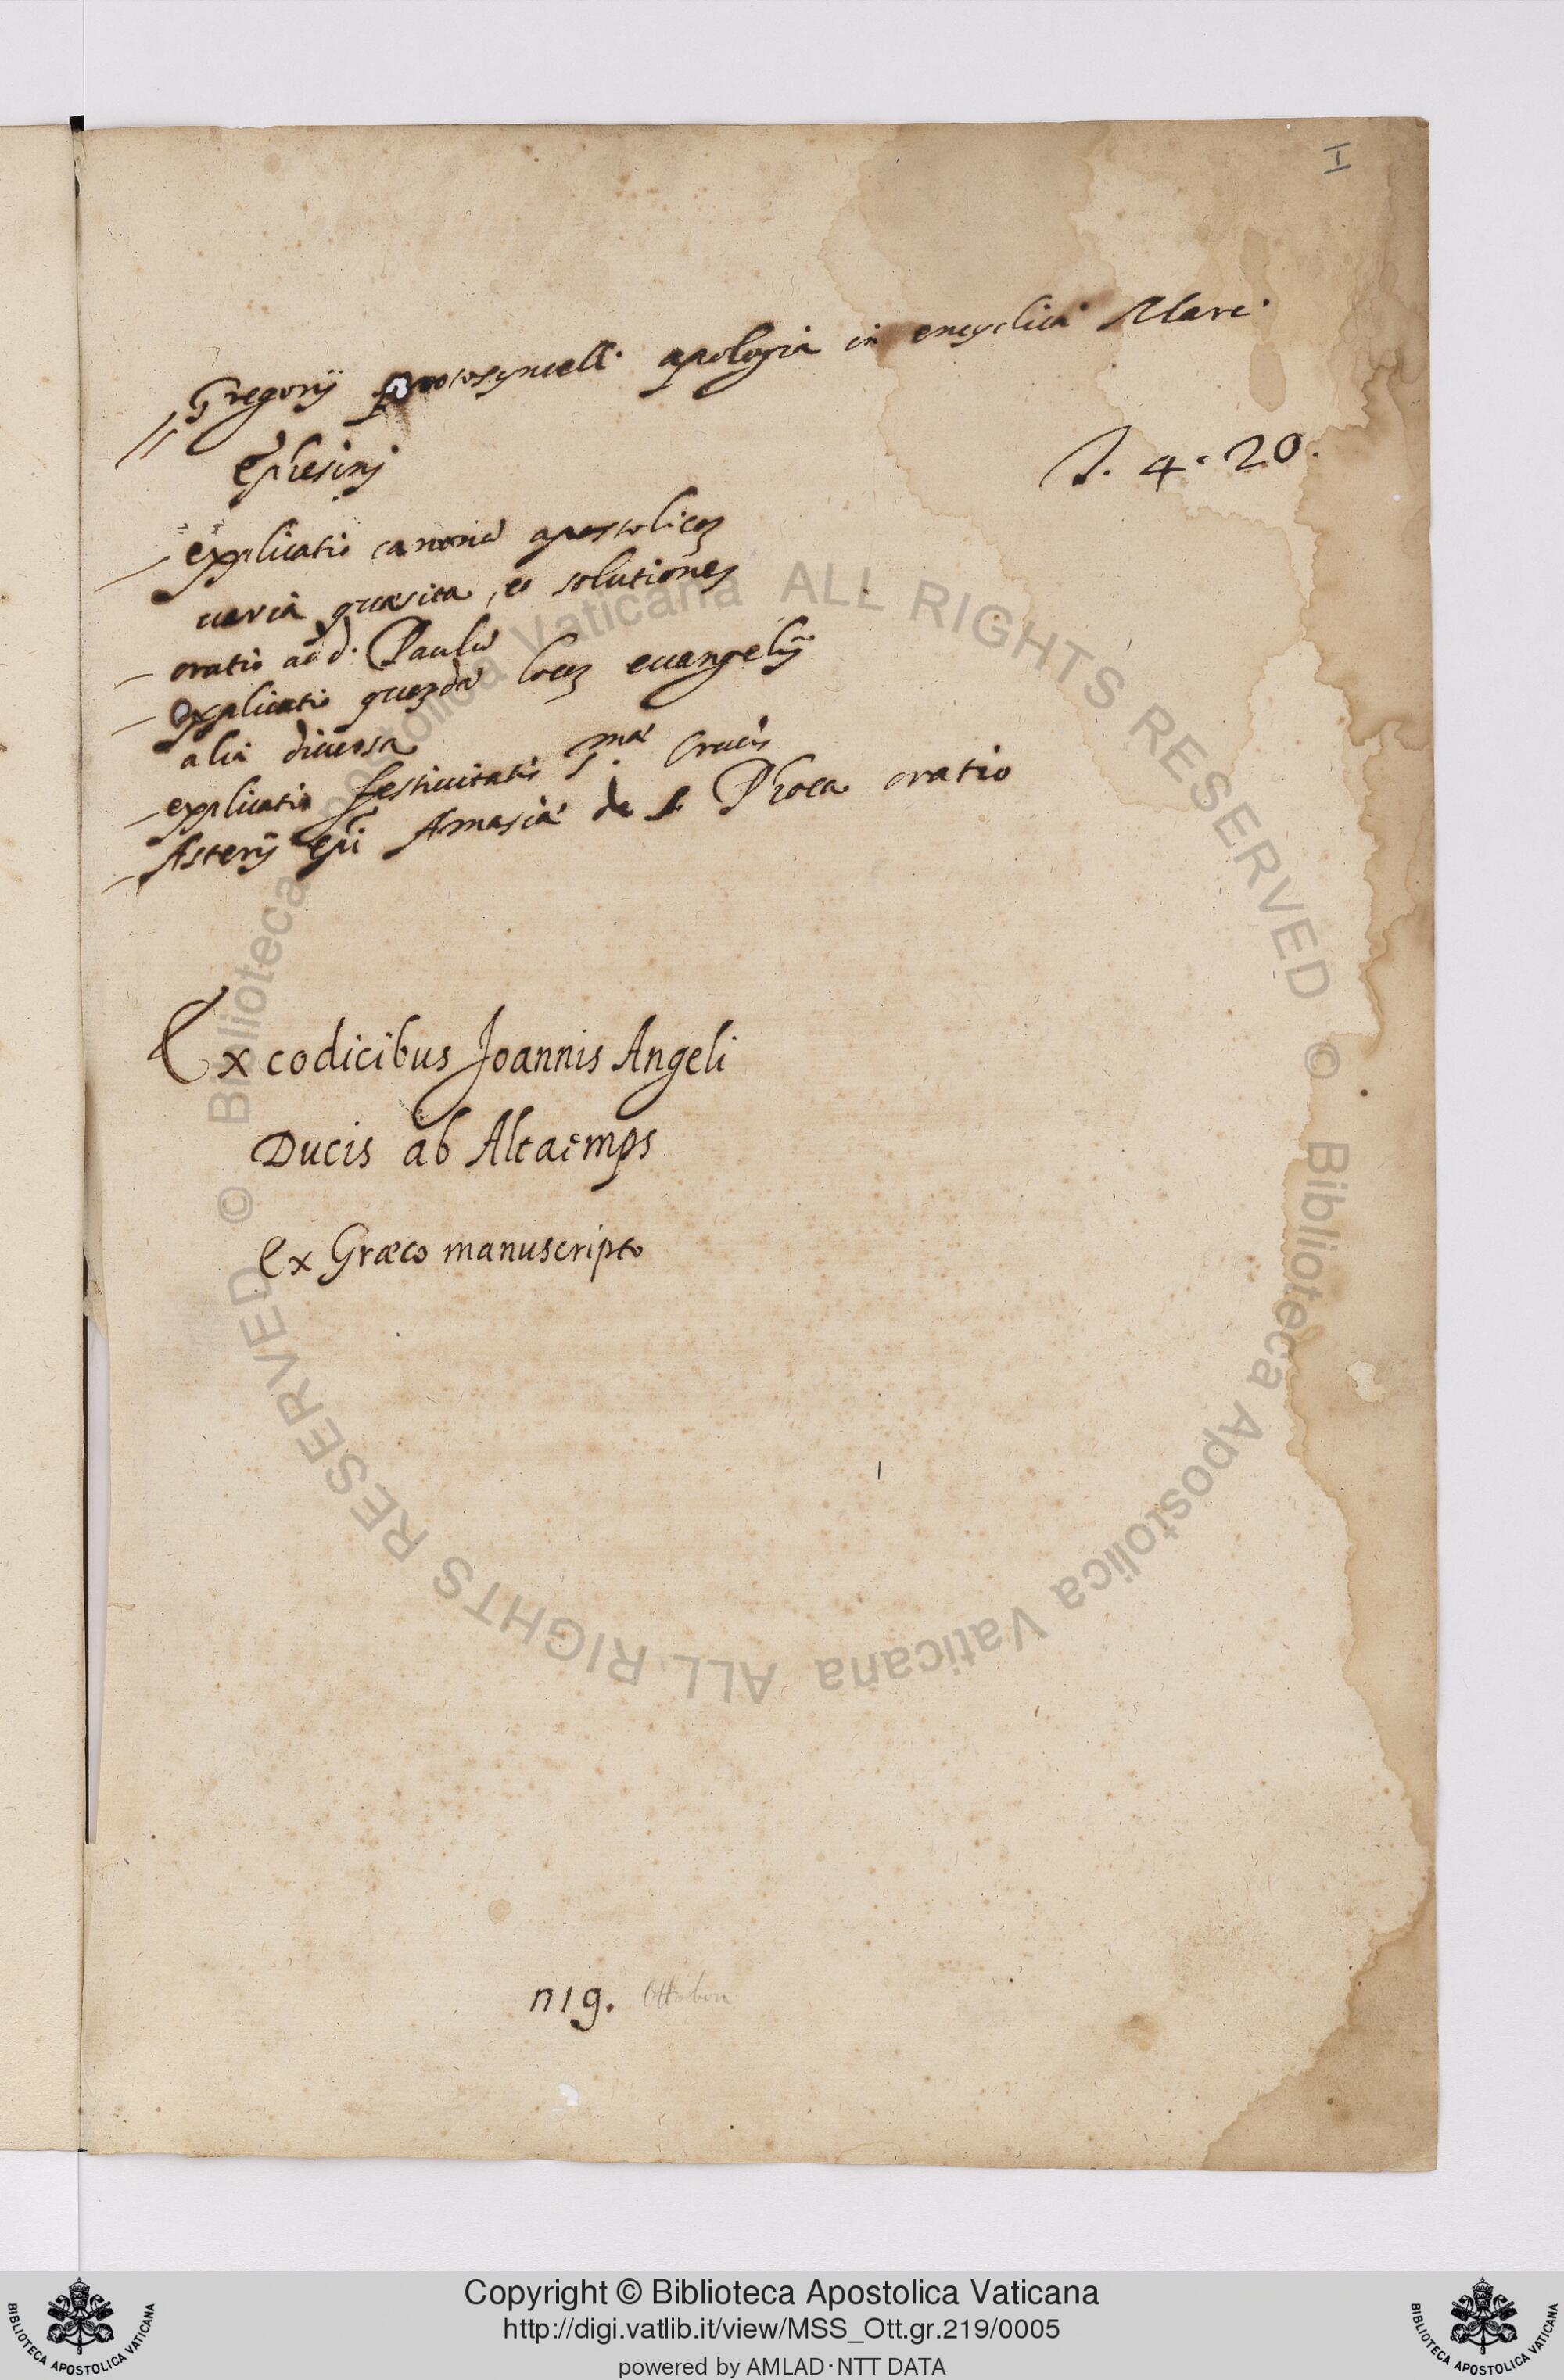 I
Gregorij protosyncelli apologia in encyclicā Marci
Ephesinj
S. 4. 20.
explicatio canonū apostolicoꝝ
varia quæsita, et solutiones
oratio ad d. Paulū
explicatio quoꝝdā locoꝝ euangelij
alia diuersa
explicatio festiuitatis S.mæ Crucis
Asterij epī Amasiæ de s. Phoca oratio
Ex codicibus Joannis Angeli
Ducis ab Altaemps
Ex Græco manuscripto
Ottobon
© Biblioteca Apostolica Vaticana ALL RIGHTS RESERVED © Biblioteca Apostolica Vaticana ALL RIGHTS RESERVED
Copyright © Biblioteca Apostolica Vaticana
http://digi.vatlib.it/view/MSS_Ott.gr.219/0005
powered by AMLAD·NTT DATA
BIBLIOTECA APOSTOLICA VATICANA
BIBLIOTECA APOSTOLICA VATICANA